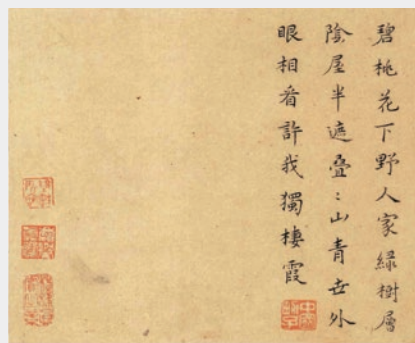 碧桃花下野人家綠樹層
陰屋半遮疊〻山青世外
眼相看許我獨棲霞